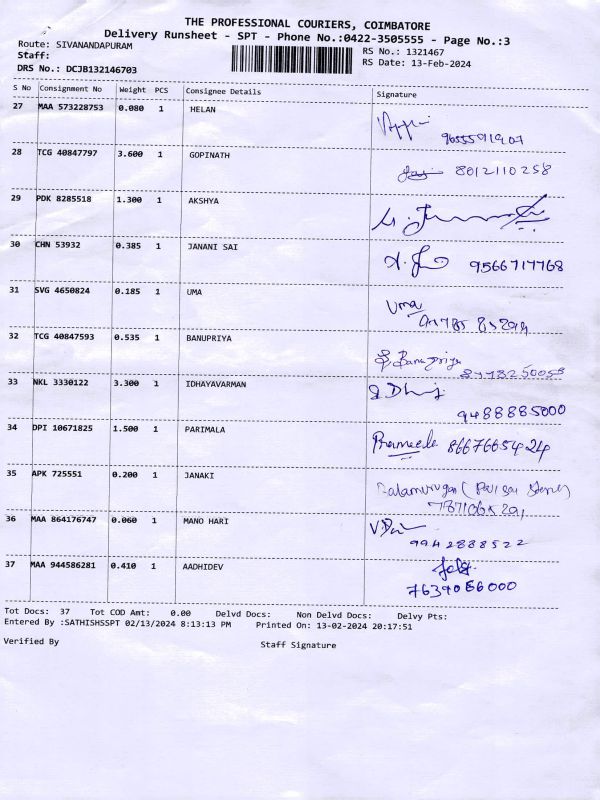 THE PROFESSIONAL COURIERS, COIMBATORE
Delivery Runsheet - SPT - Phone No.:0422-3505555 - Page No.:3
Route: SIVANANDAPURAM
RS No.: 1321467
Staff:
RS Date: 13-Feb-2024
DRS No.: DCJB132146703
S No Consignment No Weight PCS Consignee Details Signature
27 MAA 573228753 0.080 1 HELAN
9655591907
28 TCG 40847797 3.600 1 GOPINATH
8012110258
29 PDK 8285518 1.300 1 AKSHYA
30 CHN 53932 0.385 1 JANANI SAI
9566717768
31 SVG 4650824 0.185 1 UMA
Uma
32 TCG 40847593 0.535 1 BANUPRIYA
Banupriya
33 NKL 3330122 3.300 1 IDHAYAVARMAN
9488885000
34 DPI 10671825 1.500 1 PARIMALA
8667665424
35 APK 725551 0.200 1 JANAKI
Balamurugan
36 MAA 864176747 0.060 1 MANO HARI
9942888522
37 MAA 944586281 0.410 1 AADHIDEV
7639086000
Tot Docs: 37 Tot COD Amt: 0.00 Delvd Docs: Non Delvd Docs: Delvy Pts:
Entered By :SATHISHSSPT 02/13/2024 8:13:13 PM Printed On: 13-02-2024 20:17:51
Verified By Staff Signature